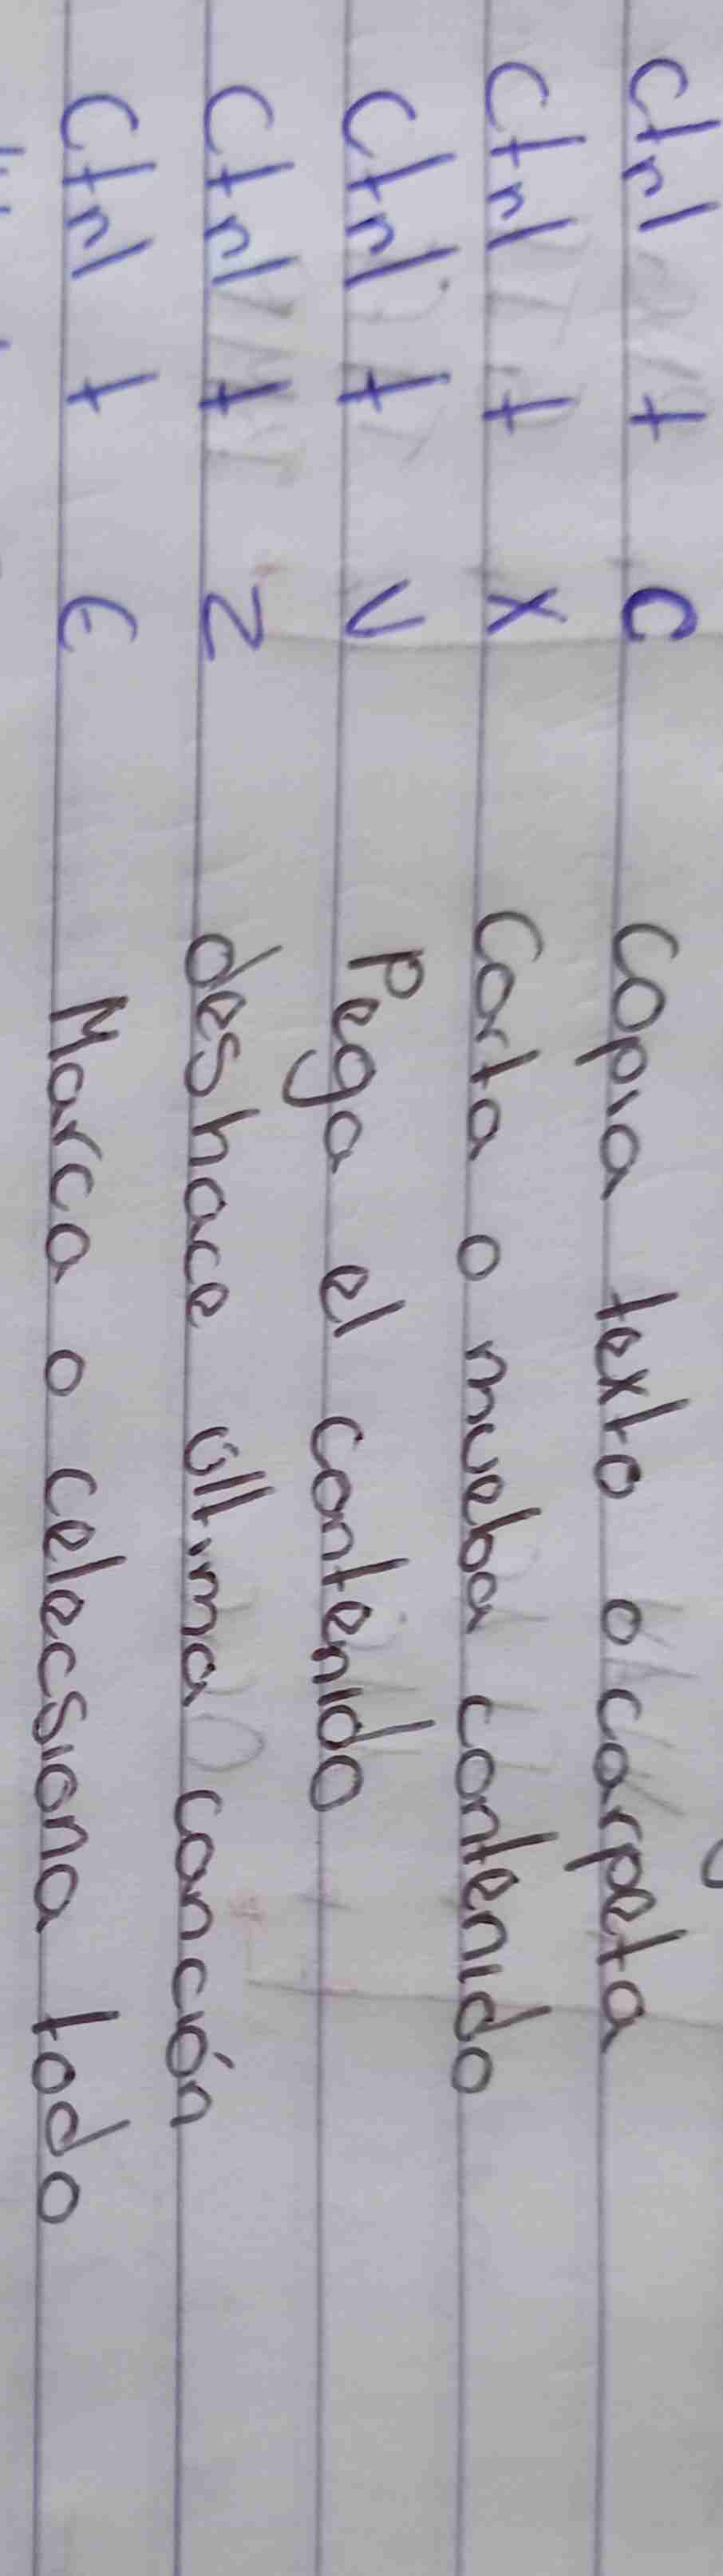 Ctrl + C copia texto o carpeta
Ctrl + X Corta o mueba contenido
Ctrl + V Pega el contenido
Ctrl + Z deshace última canción
Ctrl + E Marca o celecsiona todo